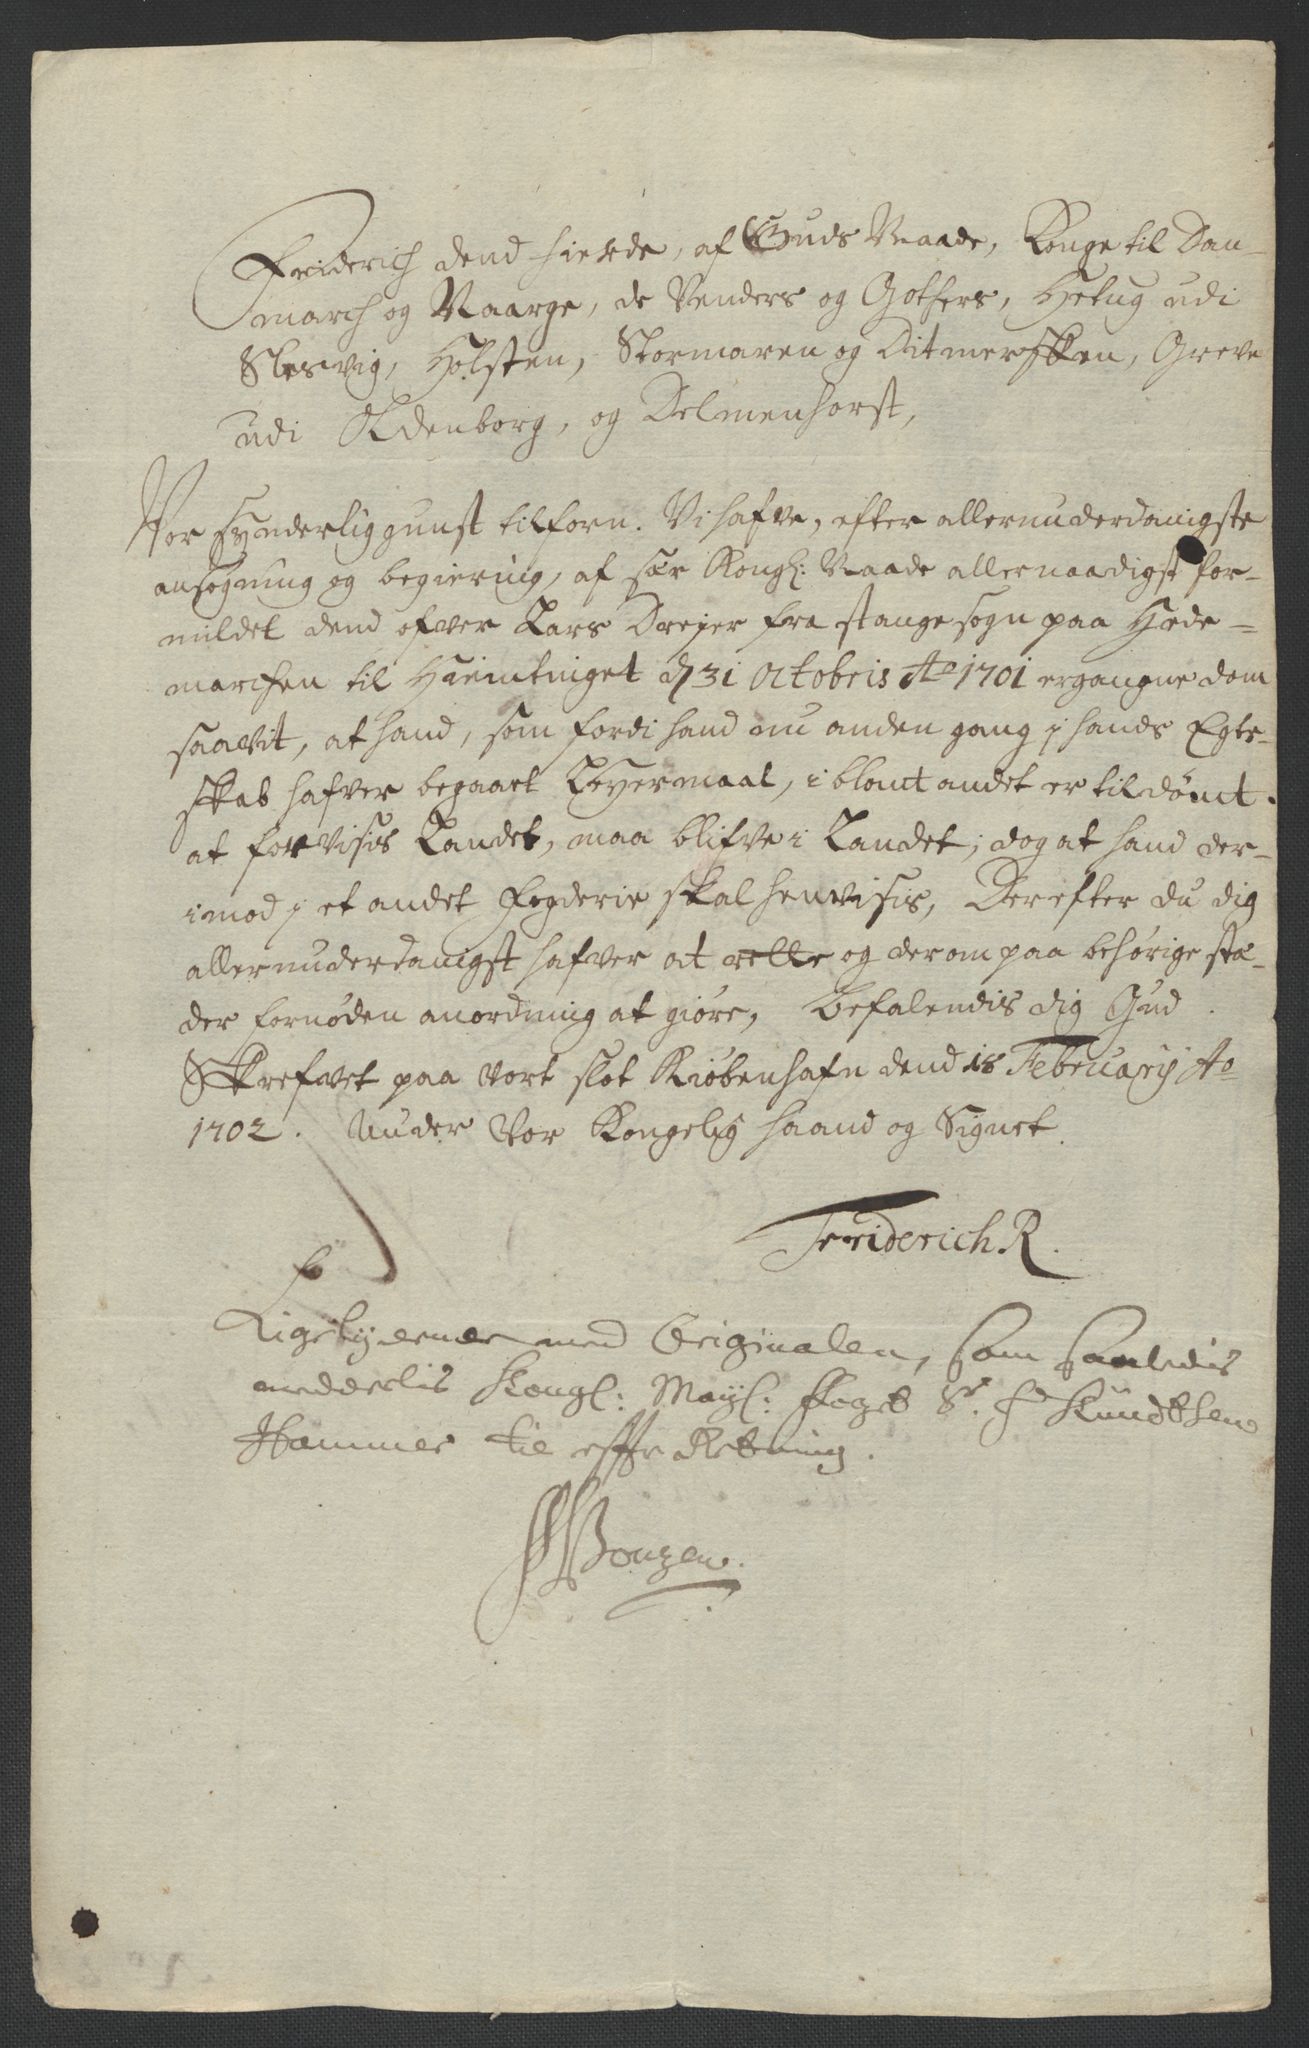 Friderich dend fierde, af Guds Naade, Konge til Dan-
march og Naarge, de Venders og Gothers, Hetug udi
Slesvig, Holsten, Stormaren og Ditmersken, Greve
udi Oldenborg, og Delmenhorst,
Vor synderlig gunst tilforn. Vi hafve, efter allerunderdanigste
ansøgning og begiering, af sær Kongl: Naade allernaadigst for-
mildet dend ofver Lars Dreyer fra stange sogn paa Hede-
marchen til Hiemtinget d 31 Octobris Ao 1701 ergangne dom
saavit, at hand, som fordi hand nu anden gang j hands Egte-
skab hafver begaaet Leyermaal, i blant andet er tildømt
at forvisis Landet, maa blifve i Landet; dog at hand der-
imod j et andet fogderie skal henvisis, Derefter du dig
allerunderdanigst hafver at rette og derom paa behørige stæ-
der fornøden anordning at giøre, Befalendis dig Gud
Skrefvet paa vort slot Kiøbenhafn dend 18 Februarij Ao
1702. Under Vor Kongelig haand og Signet
Friderich R.
Ligelydende med Originalen, som saaledis
meddelis Kongl: Mayt: foget Sr. Knudtsen
Hammer til effterRetning.